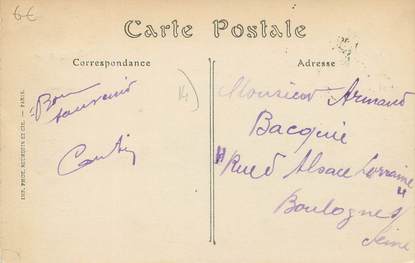 6€
Carte Postale
Correspondance
Adresse
Bon
souvenir
14
Monsieur Armand
Bacquie
"Rue d'Alsace Lorraine"
Boulogne s/
Seine
IMP. PHOT. NEURDEIN ET CIE. — PARIS.